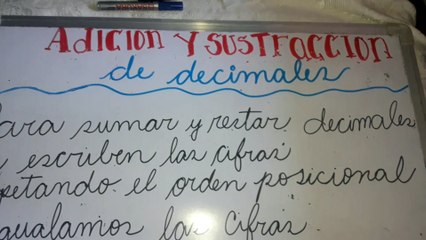 ADICION Y SUSTRACCION
de decimales
Para sumar y restar decimales
escriben las cifras
petando el orden posicional
gualamos las cifras